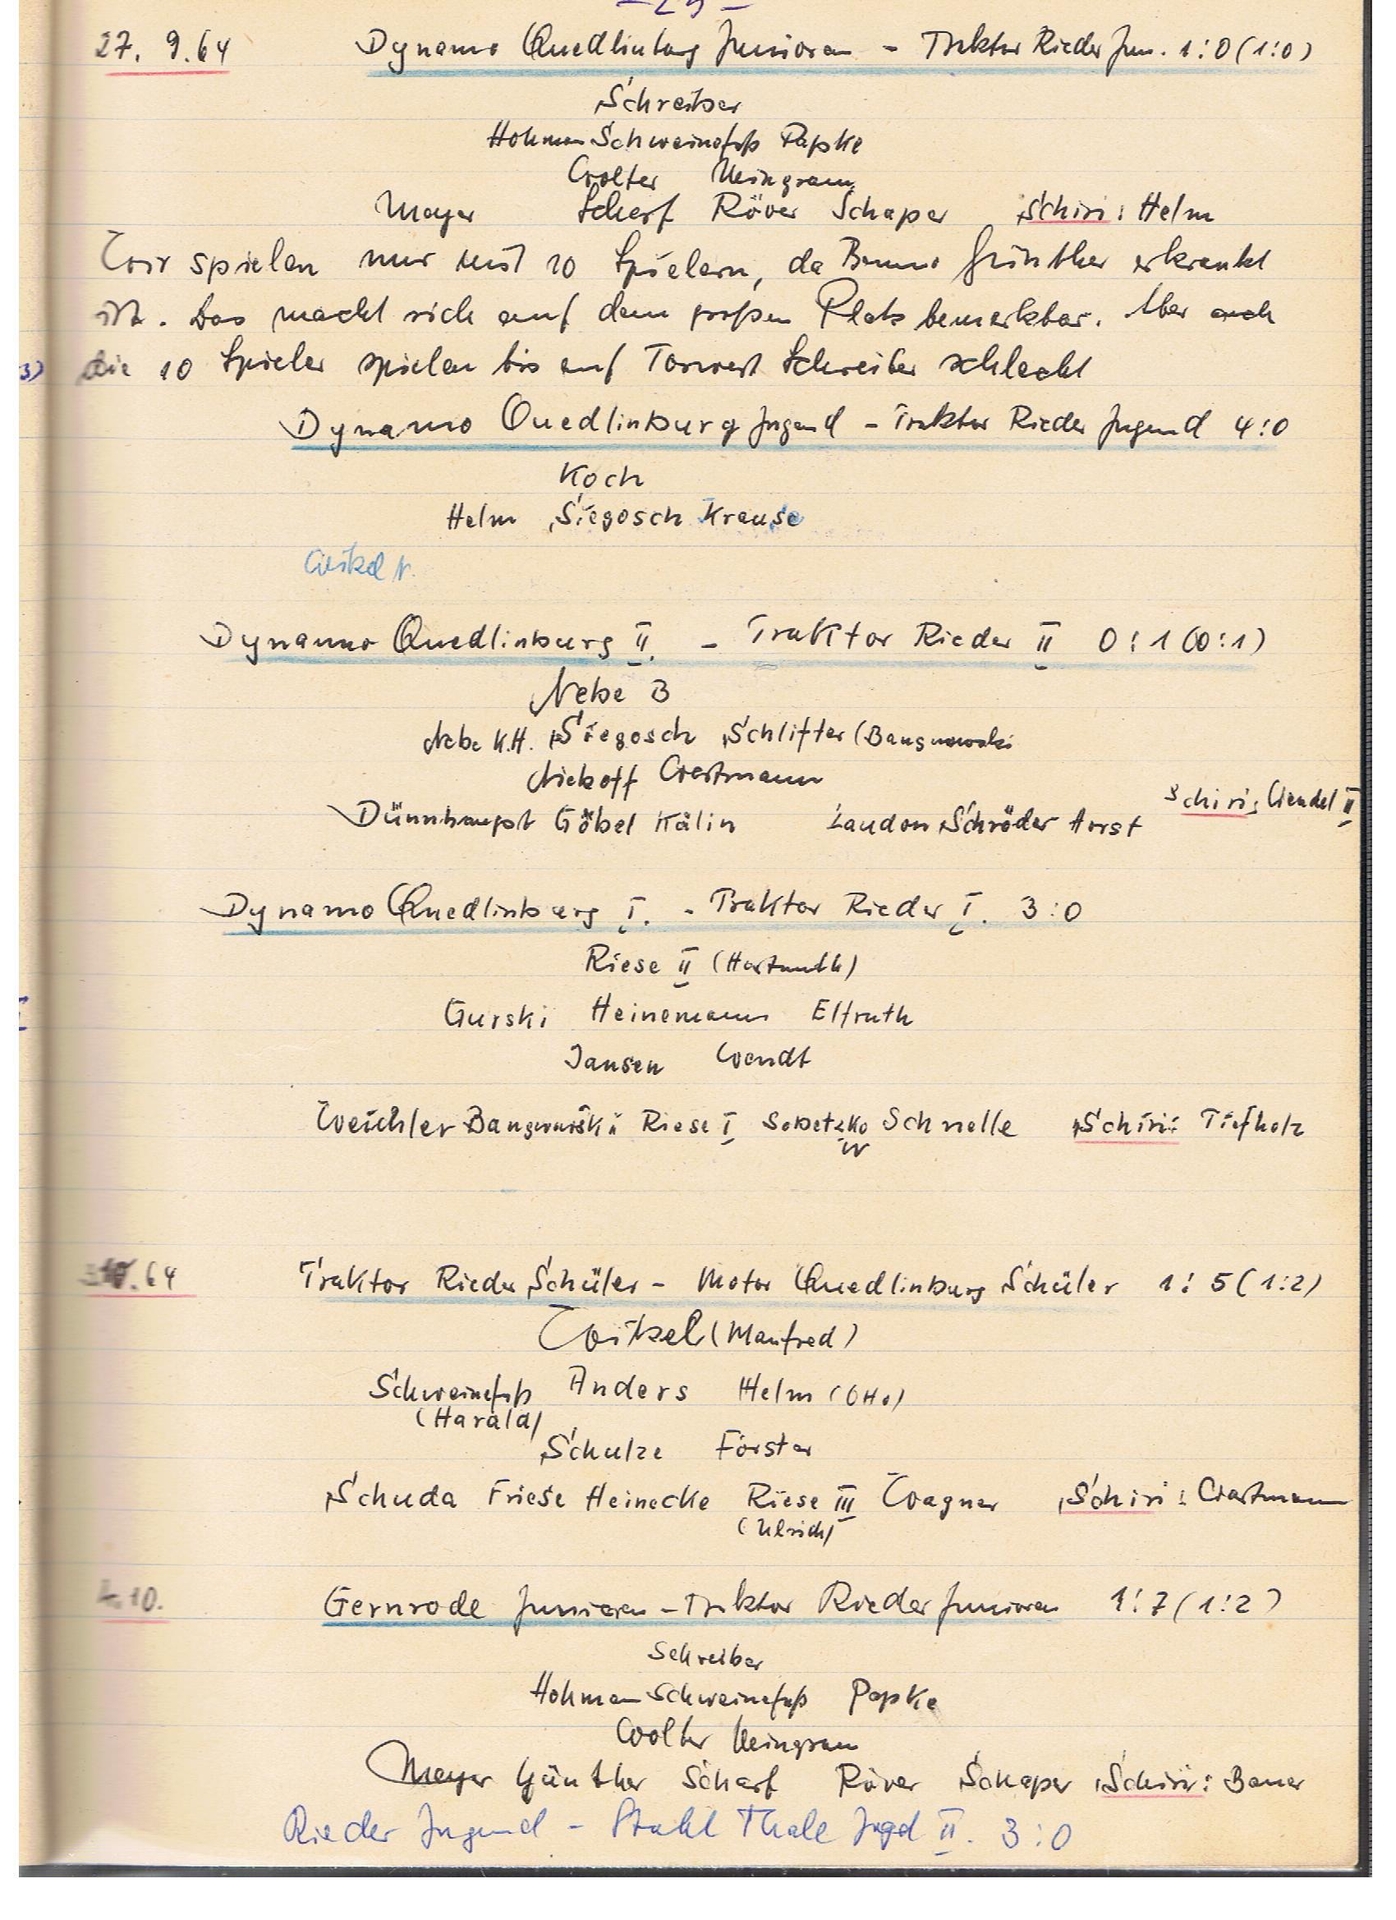 27. 9.64 Dynamo Quedlinburg Junioren - Traktor Rieder Jun. 1:0 (1:0)
Schreiber
Hohman Schweinefuß Papke
Wolter Weingram
Meyer Scharf Röver Schaper Schiri: Helm
Wir spielen nur mit 10 Spielern, da Benno Günther erkrankt
ist. Das macht sich auf dem großen Platz bemerkbar. Aber auch
die 10 Spieler spielen bis auf Torwart Schreiber schlecht
Dynamo Quedlinburg Jugend - Traktor Rieder Jugend 4:0
Koch
Helm Siegosch Krause
Dynamo Quedlinburg II. - Traktor Rieder II 0:1 (0:1)
Nebe B
Nebe K.H. Siegosch Schlifter (Bangnowski
Niehoff Westmann
Dünnhaupt Göbel Kälin Laudon Schröder Horst Schiri: Wendel II
Dynamo Quedlinburg I. - Traktor Rieder I. 3:0
Riese II (Hartmuth)
Gurski Heinemann Elfruth
Jansen Wendt
Weichler Bangnowski Riese I Sobetzko W Schnelle Schiri: Tiefholz
3.10.64 Traktor Rieder Schüler - Motor Quedlinburg Schüler 1:5 (1:2)
Weikel (Manfred)
Schweinefuß Anders Helm (Otto)
(Harald)
Schulze Förster
Schuda Friese Heinecke Riese III Wagner Schiri: Westmann
(Ulrich)
4.10. Gernrode Junioren - Traktor Rieder Junioren 1:7 (1:2)
Schreiber
Hohman Schweinefuß Papke
Wolter Weingram
Meyer Günther Scharf Röver Schaper Schiri: Bauer
Rieder Jugend - Stahl Thale Jugd II. 3:0